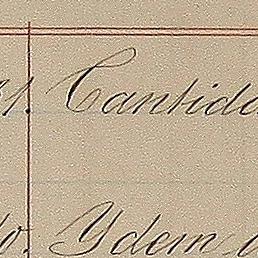 31. Cantida
Ydem